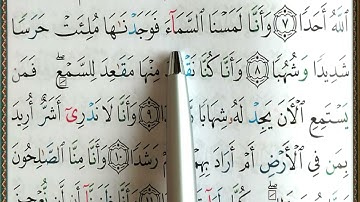 ٱللَّهُ أَحَدًا ۝٧ وَأَنَّا لَمَسْنَا ٱلسَّمَآءَ فَوَجَدْنَٰهَا مُلِئَتْ حَرَسًا
شَدِيدًا وَشُهُبًا ۝٨ وَأَنَّا كُنَّا مِنْهَا مَقَٰعِدَ لِلسَّمْعِ ۖ فَمَن
يَسْتَمِعِ ٱلْأٓنَ يَجِدْ لَهُۥ شِهَابًا ۝٩ وَأَنَّا لَا نَدْرِىٓ أَشَرٌّ أُرِيدَ
بِمَن فِى ٱلْأَرْضِ أَمْ أَرَادَ بِهِمْ رَشَدًا ۝١٠ وَأَنَّا مِنَّا ٱلصَّٰلِحُونَ